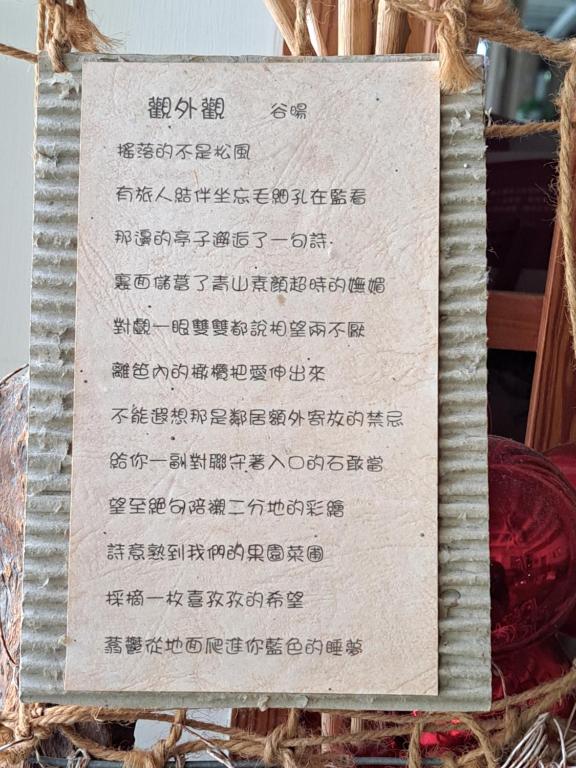 觀外觀 谷暘
搖落的不是松風
有旅人結伴坐忘毛細孔在監看
那邊的亭子邂逅了一句詩
裏面儲蓄了青山素顏超時的嫵媚
對觀一眼雙雙都說相望兩不厭
離笆內的橄欖把愛伸出來
不能遐想那是鄰居額外寄放的禁忌
給你一副對聯守著入口的石敢當
望至絕句陪襯二分地的彩繪
詩意熟到我們的果園菜圃
採摘一枚喜孜孜的希望
蓊鬱從地面爬進你藍色的睡夢